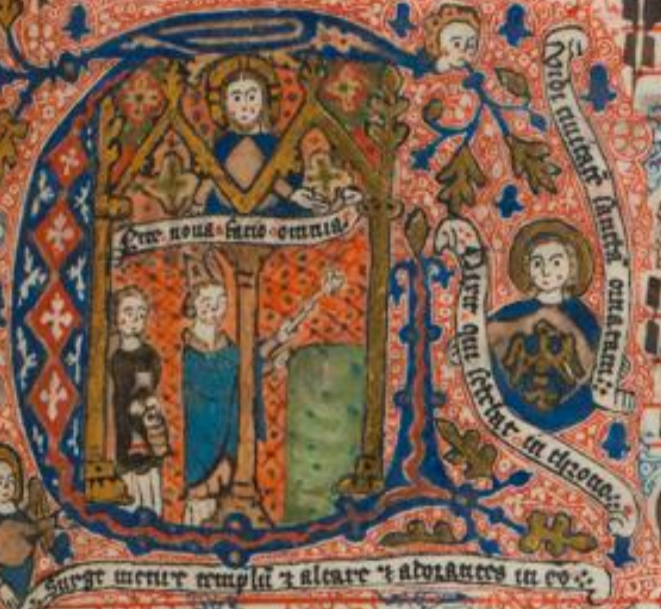 Ecce nova facio omnia
Vidi civitatem sanctam ornatam
Dixit qui sedebat in throno
Surge metire templū ⁊ altare ⁊ adorantes in eo